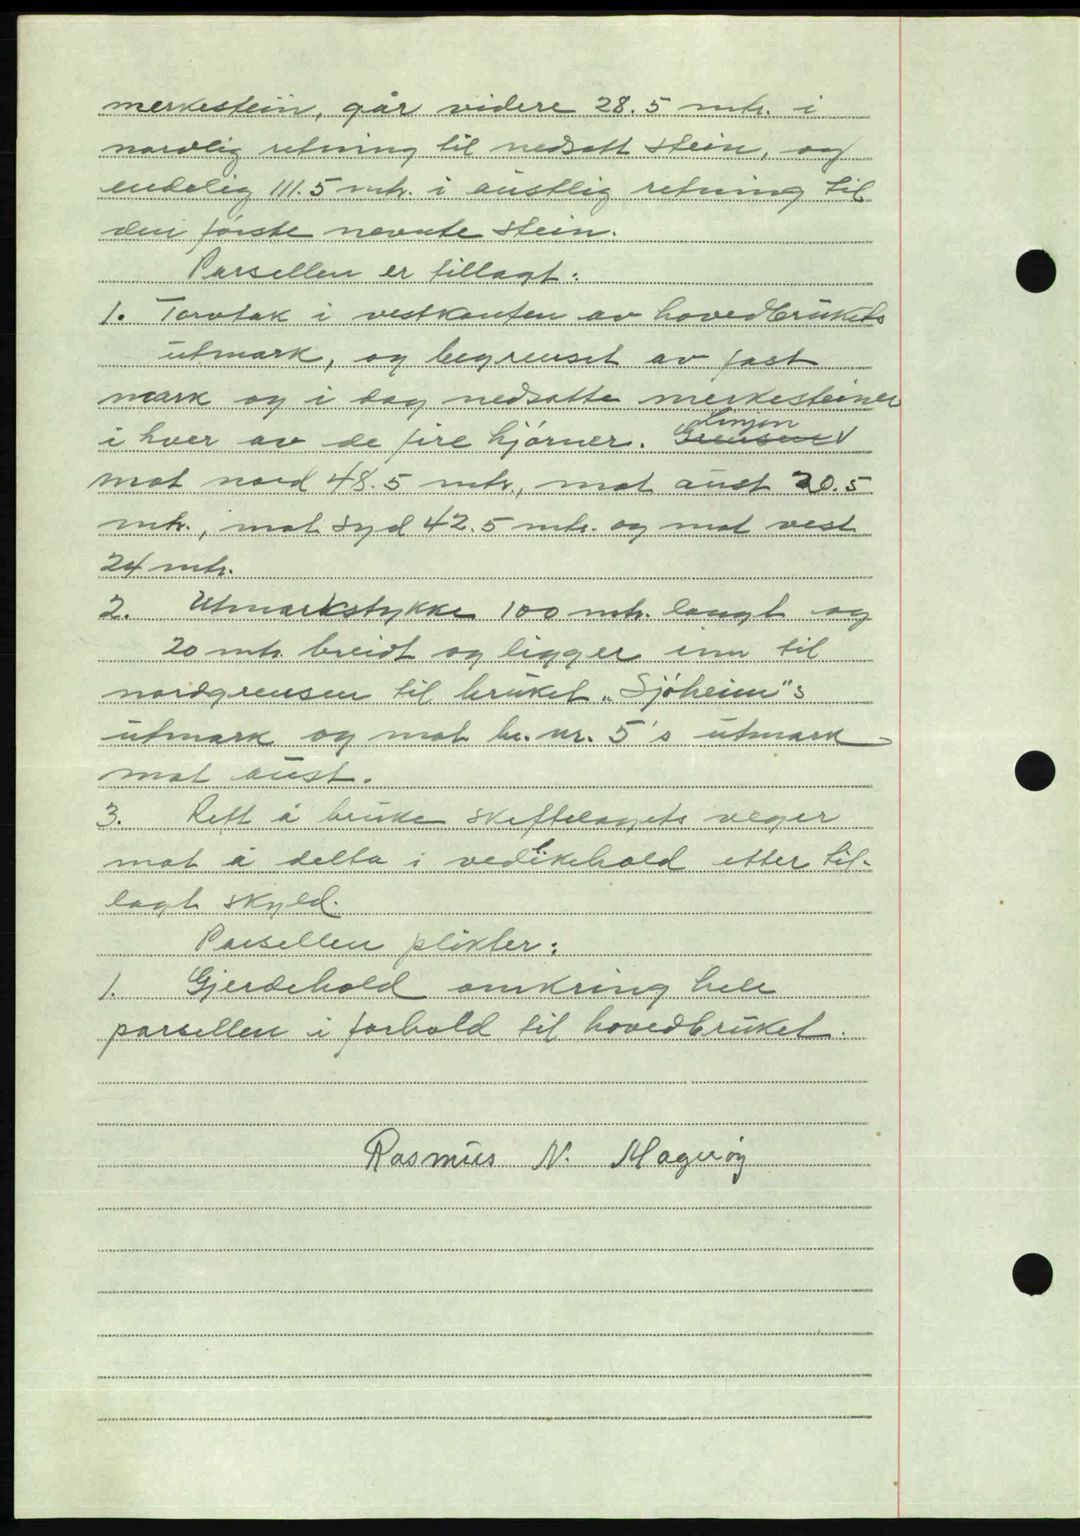 merkestein, går videre 28.5 mtr. i
nordlig retning til nedsatt stein, og
endelig 111.5 mtr. i austlig retning til
den første nevnte stein.
Parsellen er tillagt:
1. Torvtak i vestkanten av hovedbrukets
utmark, og begrenset av fast
mark og i dag nedsatte merkesteiner
i hver av de fire hjørner. Grensene Linjen
mot nord 48.5 mtr., mot aust 20.5
mtr., mot syd 42.5 mtr. og mot vest
24 mtr.
2. Utmarkstykke 100 mtr. langt og
20 mtr. breidt og ligger inn til
nordgrensen til bruket „Sjøheim"s
utmark og mot br. nr. 5's utmark
mot aust.
3. Rett å bruke skiftelagets veger
mot å delta i vedlikehold etter til-
lagt skyld.
Parsellen plikter:
1. Gjerdehold omkring hele
parsellen i forhold til hovedbruket.
Rasmus N. Magerøy